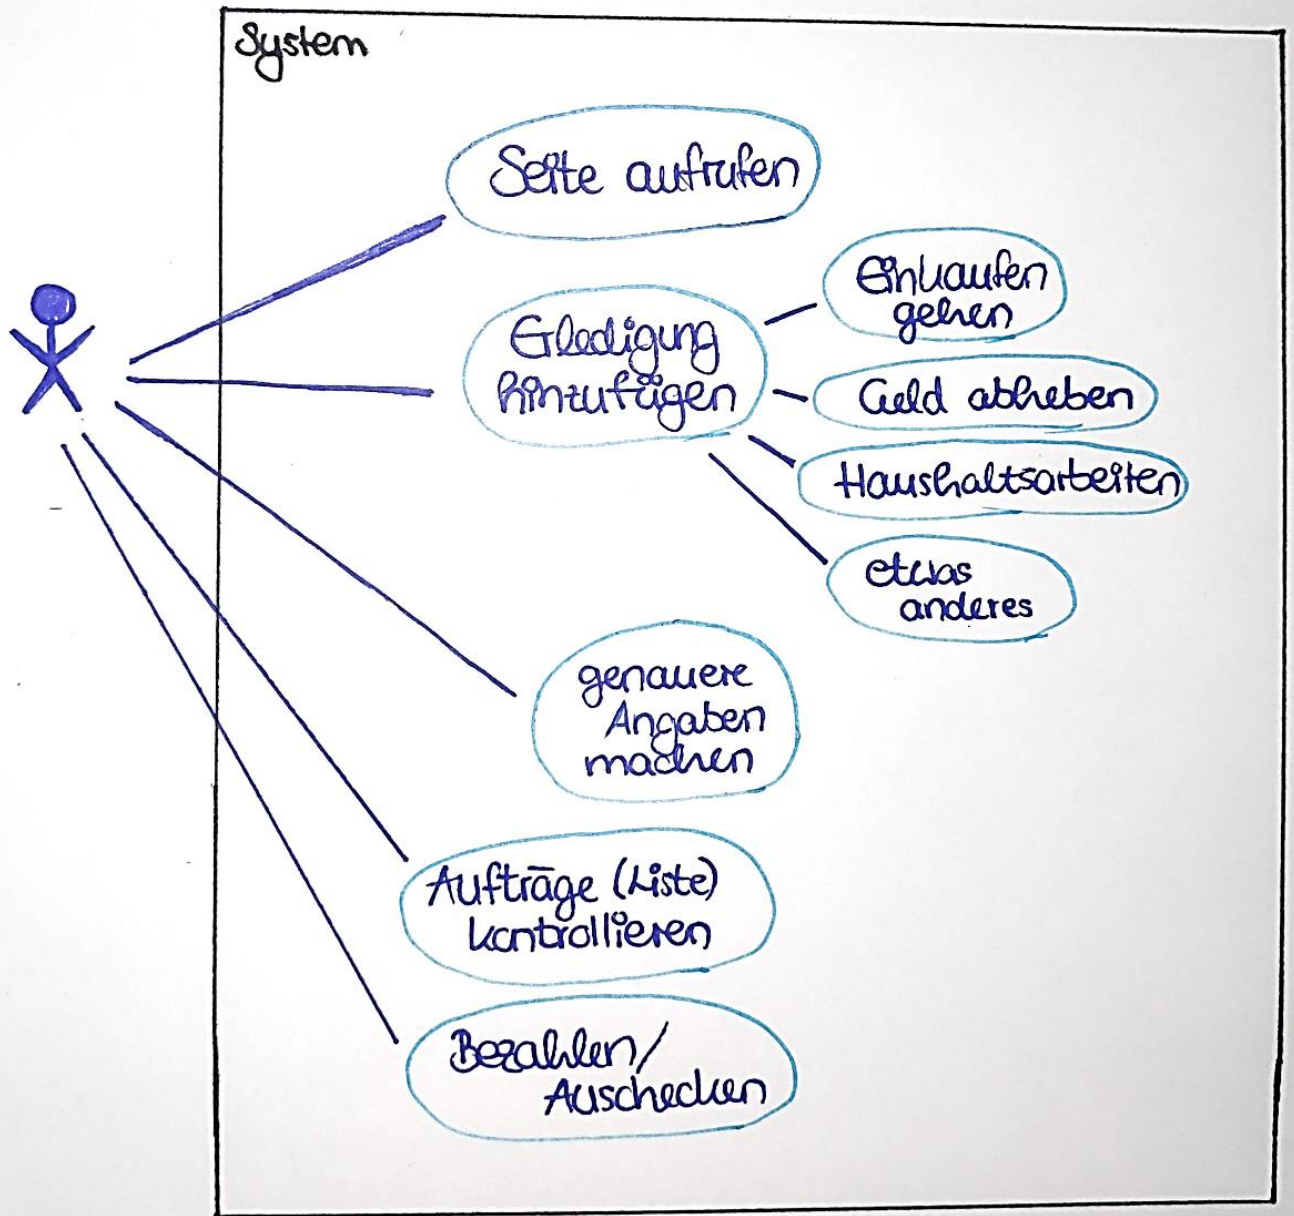 System
Seite aufrufen
Einkaufen
gehen
Erledigung
hinzufügen
Geld abheben
Haushaltsarbeiten
etwas
anderes
genauere
Angaben
machen
Aufträge (Liste)
kontrollieren
Bezahlen/
Auschecken